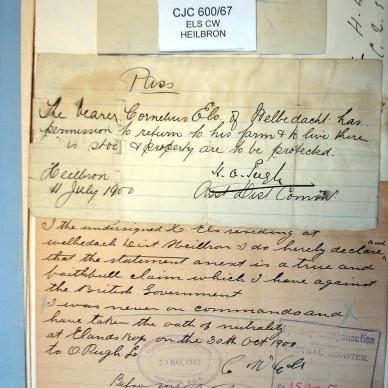 CJC 600/67
ELS CW
HEILBRON
Pass
The bearer Cornelius Els, of Welbedacht has
permission to return to his farm & to live there
is stock & property are to be protected.
Heilbron
11 July 1900
H. O. Pugh
Asst Dist Commr
I the undersigned C Els residing at
welbedach Dist Heilbron I do herely declare
that the statement anext is a true and
faithbull claim which I have against
the British Government
I was never on commando and
have taken the oath of nutrality
at Elands Kop on the 30th Oct 1900
to O Pugh
Before me